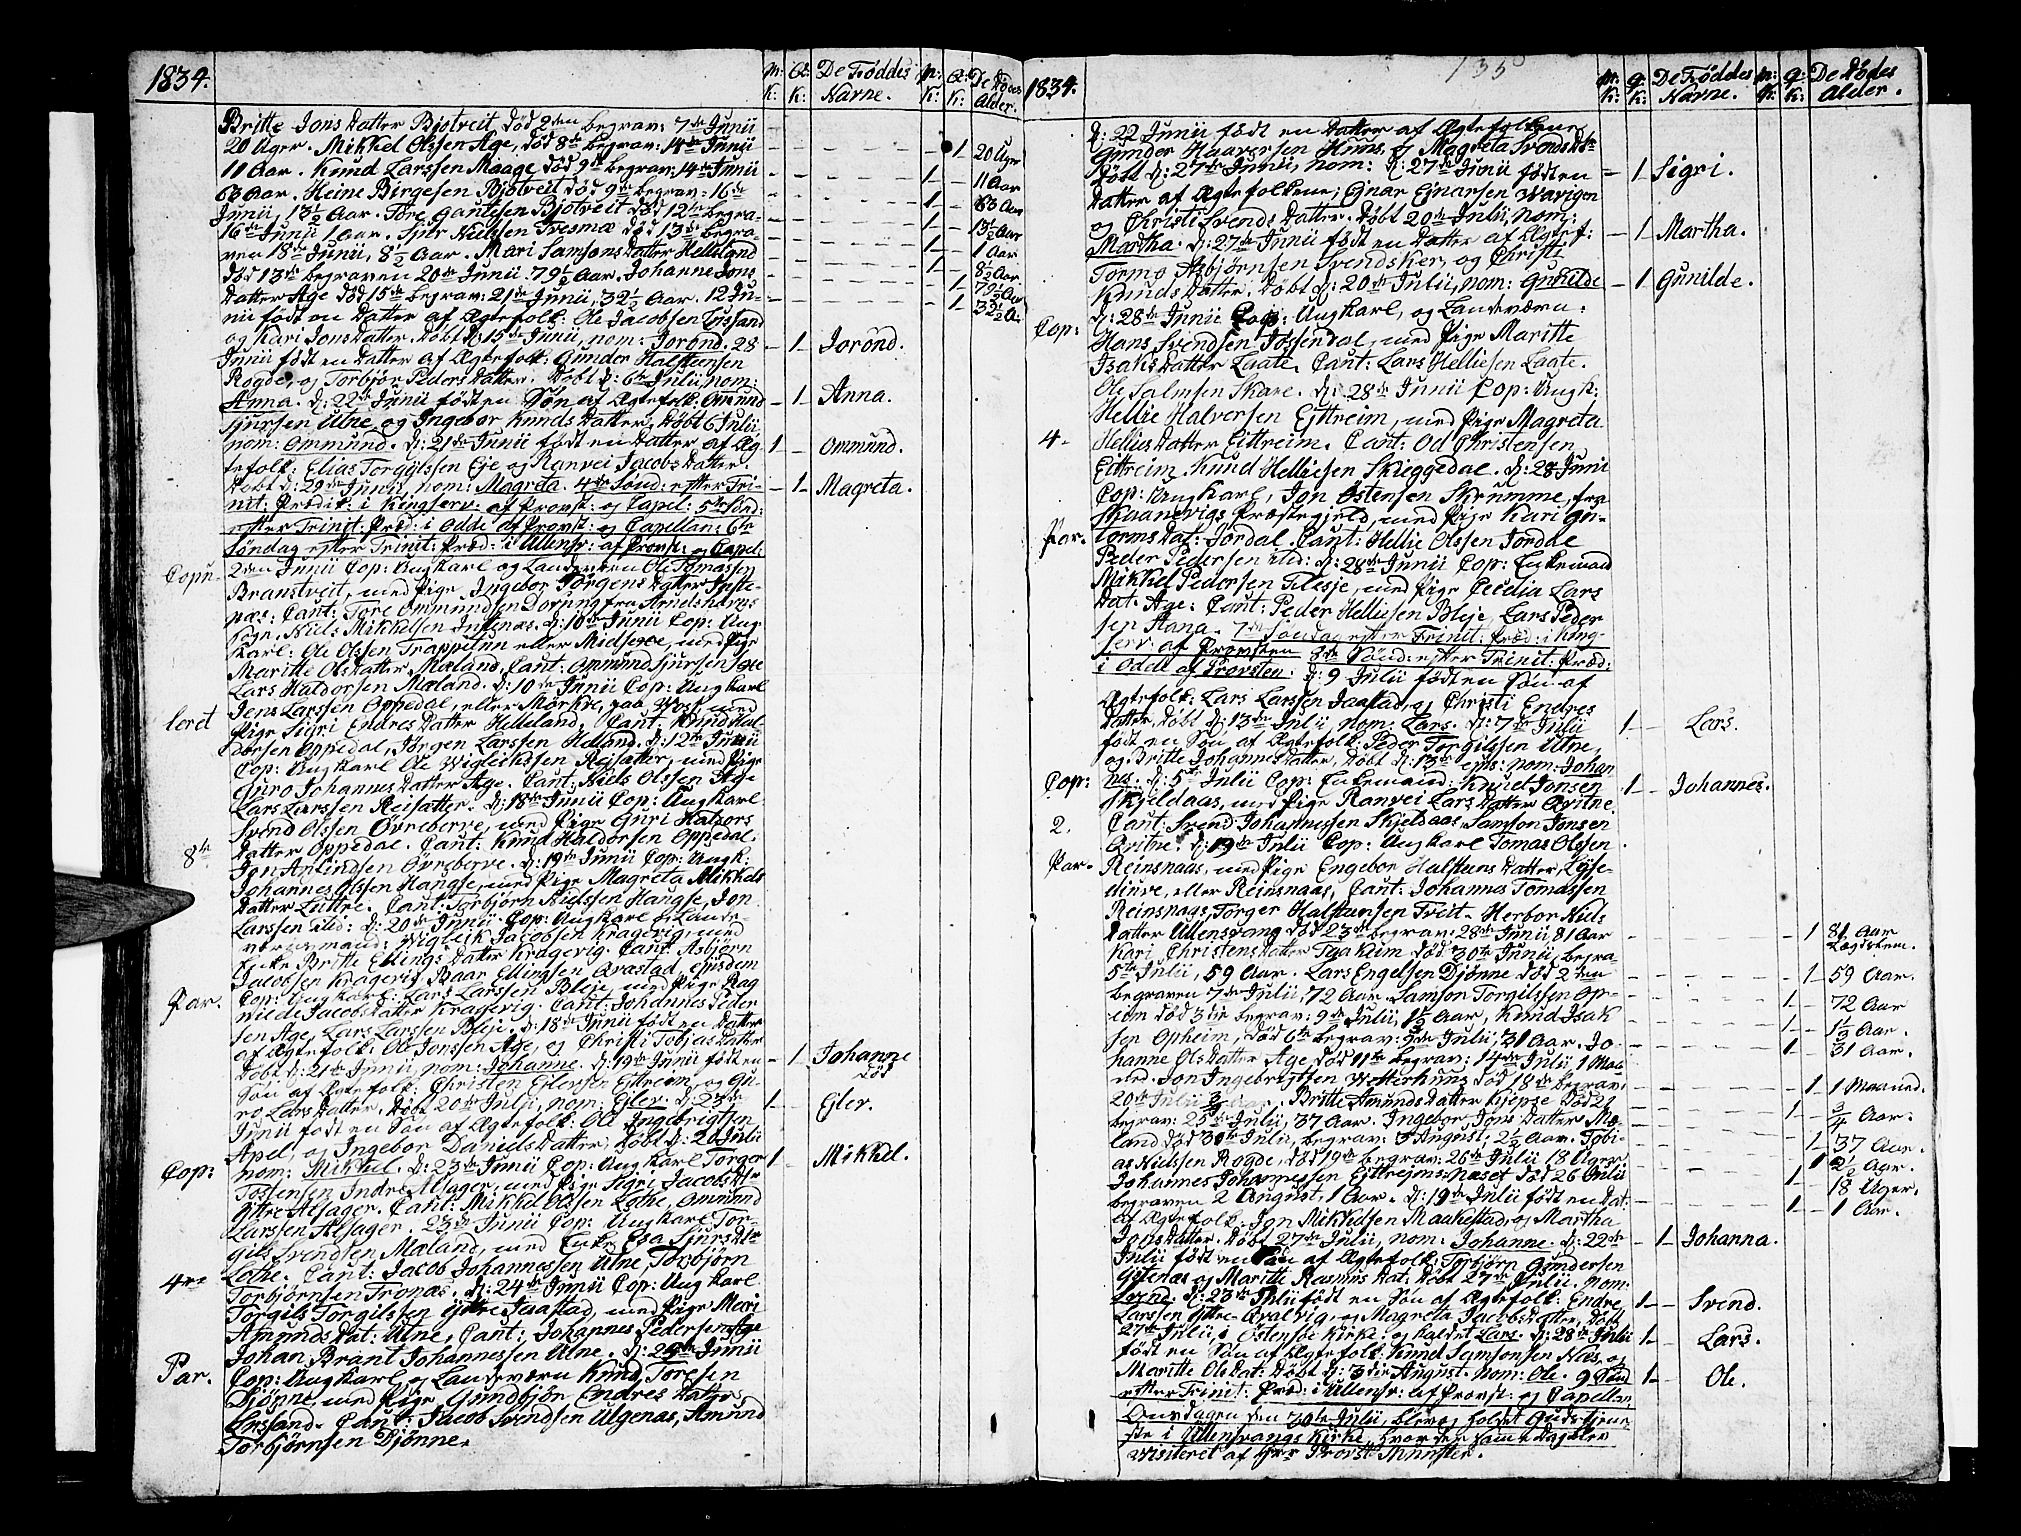 1834.
M: K:
Q: K:
De Føddes Navne.
M: K:
Q: K:
De Dødes Alder.
Britte Jons Datter Bjotveit død 2den begrav: 7de Junii
20 Uger. Mikkel Olssen Age, død 8de begrav: 14de Junii
11 Aar. Knud Larssen Maage død 9de begrav: 14de Junii
Aar. Heine Birgesen Bjotveit død 9de begrav: 16de
Junii, 13½ Aar. Tore Gautesen Bjotveit død 12te begra-
16de Junii 1 Aar. Nielssen Tresmæ død 13de begra-
ven 18de Junii, 8½ Aar. Mari Samsons Datter Helleland
død 13de begraven 20de Junii 79½ Aar. Johanne Jons
Datter Age død 15de begrav: 21de Junii, 32½ Aar. 12 Ju-
nii født en Datter af Ægtefolk: Ole Jacobsen Lyssand
og Kari Jons Datter. Døbt d: 15de Junii, nom: Jorønd. 28
Junii født en Datter af Ægtefolk: Gunder Halstensen
Rogde, og Torbjør Peders Datter. Døbt d: 6te Julii, nom:
Anna. d: 22de Junii født en Søn af Ægtefolk: Omund
Sjursen Utne og Ingebor Knuds Datter, Døbt 6 Julii
nom: Ommund. d: 21de Junii født en Datter af Æg-
tefolk: Elias Torgilssen Eje og Ranvei Jacobs Datter.
Døbt d: 29de Junii, nom: Magreta. 4de Sønd: efter Tri-
nit: Prædik: i Kingserv: af Provst: og Capel: 5te Sønd:
efter Trinit: Præd: i Odde af Provst: og Capellan: 6te
Søndag efter Trinit: Præd: i Ullensv: af Provst: og Capel:
2den Junii Cop: Ung Karl og Landeværn Ole Tomassen
Branstveit, med Pige Ingebor Jørgens Datter Inste-
næs: Caut: Tore Ommundsen
Sogn, Niels Mikkelsen Instenæs. d: 10de Junii Cop: Ung
Karl: Ole Olssen Trappetun eller Midseroe, med Pige
Maritte Ols Datter Mæland, Caut: Ommund Sjursen
Lars Haldorsen Mæland. d: 10de Junii Cop: Ung Karl
Jens Larssen Oppedal, eller Mørkve, paa Woss, med
Pige Sigri Endres Datter Helleland. Caut: Knud Hal-
dorsen Oppedal, Jørgen Larssen Helland. d: 12te Junii
Cop: Ung Karl Ole Wigleikssen Reisæter, med Pige
Guro Johannes Datter Age. Caut: Niels Olssen Age
Lars Larssen Reisæter. d: 18de Junii Cop: Ung Karl
Svend Olssen Øvreberve, med Pige Guri Haldors
Datter Oppedal. Caut: Knud Haldorsen Oppedal.
Jon Øvreberve. d: 19de Junii Cop: Ungk:
Johannes Olssen Hangse, med Pige Magreta Mikkels
Datter Luttre. Caut: Torbjørn Nielssen Hangse, Jon
Larssen d: 20de Junii Cop: Ung Karl og Lande-
værnsmand: Wigleik Jacobsen Kragevig, med
Enke Britte Ellings Datter Kragevig. Caut: Asbjørn
Jacobsen Kragevig Baar Ellingsen
Cop: Ung Karl: Lars Larssen Bleje, med Pige Rag
nilde Jacobs Datter Kragevig. Caut: Johannes Peder
sen Age, Lars Larssen Bleje. d: 18de Junii født en Datter
af Ægtefolk: Ole Jonssen Age, og Christi Tobias Datter
Døbt d: 21de Junii, nom: Johanne. d: 19de Junii født en
Søn af Ægtefolk: Christen Eilersen Eittreim, og Gu-
ro Lars Datter, Døbt 20de Julii, nom: Ejler. d: 23de
Junii født en Søn af Ægtefolk: Ole Ingebrigtsen
Apel, og Ingebor Daniels Datter, Døbt d: 20 Julii
nom: Mikkel. d: 23de Junii Cop: Ung Karl Torger
Tostensen Indre Alsager, med Pige Sigri Jacobs Dtr
Yttre Alsager. Caut: Mikkel Olssen Lothe, Ommund
Larssen Alsager. 23de Junii Cop: Ung Karl Tor-
gils Svendsen Mæland, med Enke Esa Sjurs Dtr
Lothe. Caut: Jacob Johannessen Utne, Torbjørn
Torbjørnsen Tronæs. d: 24de Junii Cop: Ung Karl
Torgils Torgilssen Yttre Jaastad, med Pige Mari
Amunds Dat: Utne, Caut: Johannes Pedersen Age
Johan Brant Johannessen Utne. d: 29de Junii
Cop: Ung Karl og Landeværn Knud Toresen
Djønne, med Pige Gundbjør Endres Datter
Lyssand. Caut: Jacob Svendsen Ulgenæs, Amund
Torbjørnsen Djønne.
Copu-
leret
8te
Par.
Cop:
4re
Par.
1 Jorønd.
1 Anna.
1 Ommund.
1 Magreta.
1 Johanne død
1 Ejler.
1 Mikkel.
1 20 Uger
1 11 Aar
1 83 Aar
1 13½ Aar
1 1 Aar
1 8½ Aar
1 79½ Aar
1 32½ A.
135
1834.
M: K:
Q: K:
De Føddes Navne.
M: K:
Q: K:
De Dødes Alder.
d: 22 Junii født en Datter af Ægtefolkene
Gunder Haaversen Huus, og Magreta Svends Dtr
Døbt d: 27de Junii, nom: d: 27de Junii født en
Datter af Ægtefolkene; Ejnar Ejnarsen Warigen
og Christi Svends Datter. Døbt 20de Julii, nom:
Martha. d: 27de Junii født en Datter af Ægtef:
Tormo Asbjørnsen Svendsker, og Christi
Knuds Datter. Døbt d: 20de Julii, nom: Gunilde
d: 28de Junii Cop: Ung Karl, og Landeværn:
Hans Svendsen Jøssendal, med Pige Maritte
Isaks Datter Laate. Caut: Lars Helliesen Laate.
Ole Salmsen Skare. d: 28de Junii Cop: Ungk:
Hellie Halversen Eittreim, med Pige Magreta
Hellies Datter Eittreim. Caut: Od Christensen
Eittreim. Knud Helliesen Skieggedal. d: 28 Junii
Cop: Ung Karl, Jon Østensen Skrumme, fra
Skaanevigs Præstegjeld, med Pige Kari Gu-
torms Dat: Jordal. Caut: Hellie Olssen Jordal
Peder Pedersen d: 28de Junii Cop: Enkemand
Mikkel Pedersen Tilesje, med Pige Cecelia Lars
Dat: Age: Caut: Peder Helliesen Bleje, Lars Peder
sen Aana. 7de Søndag efter Trinit: Præd: i King-
serv: af Provsten 8de Sønd: efter Trinit: Præd:
i Odde af Provsten. d: 9 Julii født en Søn af
Ægtefolk: Lars Larssen Jaastad, og Christi Endres
Datter, Døbt d: 13de Julii nom: Lars. d: 7de Julii
født en Søn af Ægtefolk: Peder Torgilssen Utne,
og Britte Johannes Datter, Døbt d: 13de ejus: nom: Johan
nes. d: 5te Julii Cop: Enkemand: Knud Jonsen
Skjeldaas, med Pige Ranvei Lars Datter Qvitne
Caut: Svend Johannessen Skjeldaas, Samson Jonsen
Qvitne. d: 19de Julii Cop: Ung Karl Tomas Olssen
Reinsnaas, med Pige Engebor Halstens Datter,
eller Reinsnaas, Caut: Johannes Tomassen
Reinsnaas, Torger Halstensen Freit. Herbor Niels
Datter Ullensvang død 23de begrav: 28de Junii, 81 Aar
Kari Christens Datter Tyakeim død 30te Junii, begra
5te Julii, 59 Aar. Lars Engelsen Djønne død 2den
begraven 7de Julii, 72 Aar. Samson Torgilssen Op-
eim død 3die begrav: 9de Julii, 1½ Aar, Knud Isak
sen Opheim, død 6te begrav: 9de Julii, 31 Aar. Jo-
hanne Ols Datter Age død 11te begrav: 14de Julii 1 Maa
ned. Jon Ingebrigtsen Wetterhuus død 18de begrav:
20de Julii ¾ Aar. Britte Amunds Datter Kjepse død 21
begrav: 25de Julii, 37 Aar. Ingebor Jons Datter Mæ-
land død 30te Julii, begrav: 5 August, 2½ Aar. Tobi-
as Nielssen Rogde, død 19de begrav: 26de Julii 18 Uger
Johannes Johannessen Eittreims-næset død 26 Julii
begraven 2 August, 1 Aar. d: 19de Julii født en Dat:
af Ægtefolk: Jon Mikkelsen Maakestad, og Martha
Jons Datter. Døbt 27de Julii, nom: Johanne. d: 22de
Julii født en Søn af Ægtefolk: Torbjørn Gundersen
og Maritte Rasmus Dat: Døbt 27de Julii. nom:
Svend. d: 23de Julii født en Søn af Ægtefolk: Endre
Larssen Yttre-Qvalvig, og Magreta Jacobs Datter, Døbt
27de Julii, i Østensøe Kirke: og kaldet Lars. d: 28de Julii
født en Søn af Ægtefolk: Knud Samsonsen Næs, og
Maritte Ols Dat: Døbt d: 3die August. nom: Ole. 9 Sønd
efter Trinit: Præd: i Ullensv: af Provst: og Capellan.
Onsdagen den 30te Julii, blev holdet Gudstjene-
ste i Ullensvangs Kirke, hvor den samme Dag blev
Visiteret af Hrr Provst Münster.
Cop:
4-
Par.
Cop:
2.
Par.
1 Sigri.
1 Martha.
1 Gunilde.
1 Lars.
1 Johannes.
1 81 Aar
Lægdslem.
1 59 Aar.
1 72 Aar
1 1½ Aar.
1 31 Aar.
1 1 Maaned.
1 ¾ Aar.
1 37 Aar.
1 2½ Aar.
1 18 Uger.
1 1 Aar.
1 Johanna.
1 Svend.
1 Lars.
1 Ole.